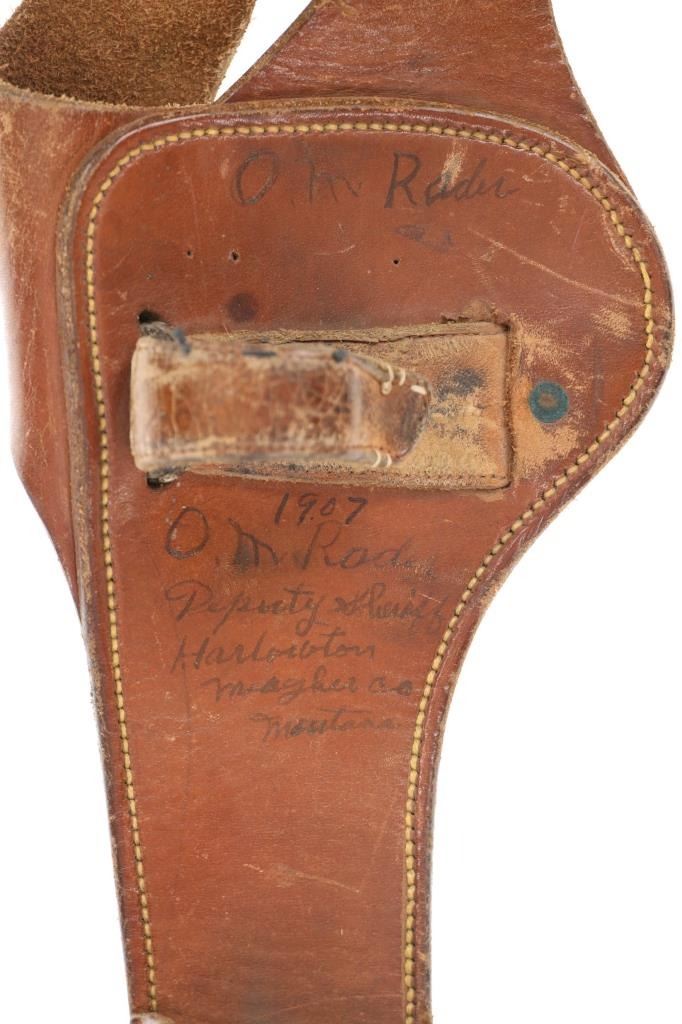 O M Rader
1907
O. M Rader
Deputy Sheriff
Harlowton
Meagher Co
Montana